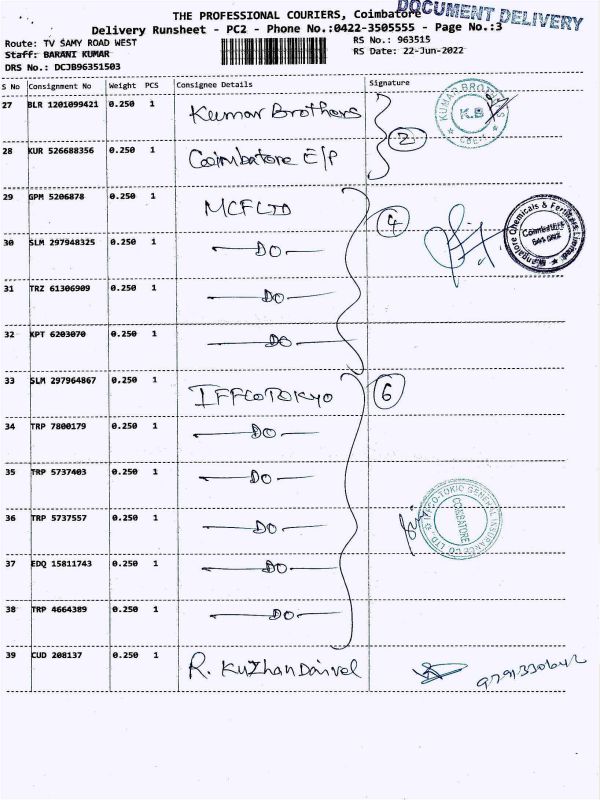 THE PROFESSIONAL COURIERS, Coimbatore
DOCUMENT DELIVERY
Delivery Runsheet - PC2 - Phone No.:0422-3505555 - Page No.:3
Route: TV SAMY ROAD WEST
RS No.: 963515
Staff: BARANI KUMAR
RS Date: 22-Jun-2022
DRS No.: DCJB96351503
S No Consignment No Weight PCS Consignee Details Signature
27 BLR 1201099421 0.250 1 Kumar Brothers
KUMAR BROTHERS K.B CBE
2
28 KUR 526688356 0.250 1 Coimbatore E/P
29 GPM 5206878 0.250 1 MCFLTD
4
Mangalore Chemicals & Fertilizers Limited Coimbatore
30 SLM 297948325 0.250 1 DO
31 TRZ 61306909 0.250 1 DO
32 KPT 6203070 0.250 1 DO
33 SLM 297964867 0.250 1 IFFCO TOKYO
6
34 TRP 7800179 0.250 1 DO
35 TRP 5737403 0.250 1 DO
36 TRP 5737557 0.250 1 DO
IFFCO-TOKIO GENERAL INSURANCE CO LTD COIMBATORE
37 EDQ 15811743 0.250 1 DO
38 TRP 4664389 0.250 1 DO
39 CUD 208137 0.250 1 R. KuzhanDaivel